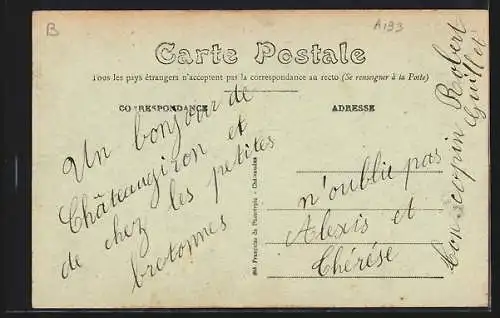 B
A193
Carte Postale
Tous les pays étrangers n'acceptent pas la correspondance au recto (Se renseigner à la Poste)
CORRESPONDANCE
ADRESSE
Un bonjour de
Châteaugiron et
de chez les petites
bretonnes
n'oublie pas
Alexis et
Thérèse
ton copin Robert
Guillet
Sté Française de Phototypie - Châteaudun